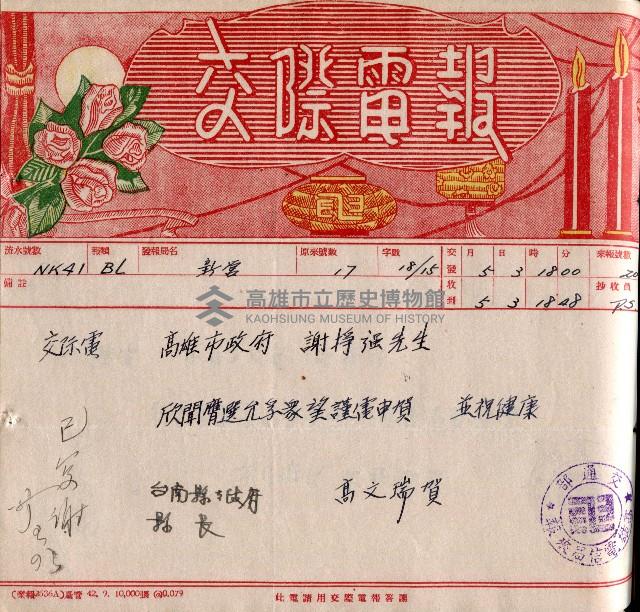 交際電報
流水號數 報類 發報局名 原來號數 字數 交發 月 日 時 分 來報號數
NK41 BL 新営 17 18/15 5 3 18 00 20
備註 收到 5 3 18 48 抄收員
高雄市立歷史博物館
KAOHSIUNG MUSEUM OF HISTORY
交际電 高雄市政府 謝掙强先生
欣聞膺選允孚眾望謹電申賀 並祝健康
台南縣政府
縣長 高文瑞賀
已复謝
交通部
(業報2636A)臺電 42. 9. 10,000張 @0.079
此電請用交際電報答謝